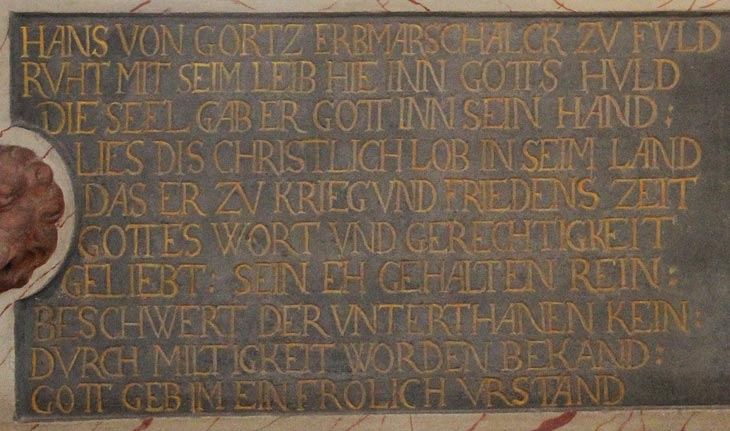 HANS VON GORTZ ERBMARSCHALCK ZV FVLD
RVHT MIT SEIM LEIB HIE INN GOTTS HVLD
DIE SEEL GAB ER GOTT INN SEIN HAND:
LIES DIS CHRISTLICH LOB IN SEIM LAND
DAS ER ZV KRIEG VND FRIEDENS ZEIT
GOTTES WORT VND GERECHTIGKEIT
GELIEBT: SEIN EH GEHALTEN REIN:
BESCHWERT DER VNTERTHANEN KEIN:
DVRCH MILTIGKEIT WORDEN BEKAND:
GOTT GEB IM EIN FROLICH VRSTAND